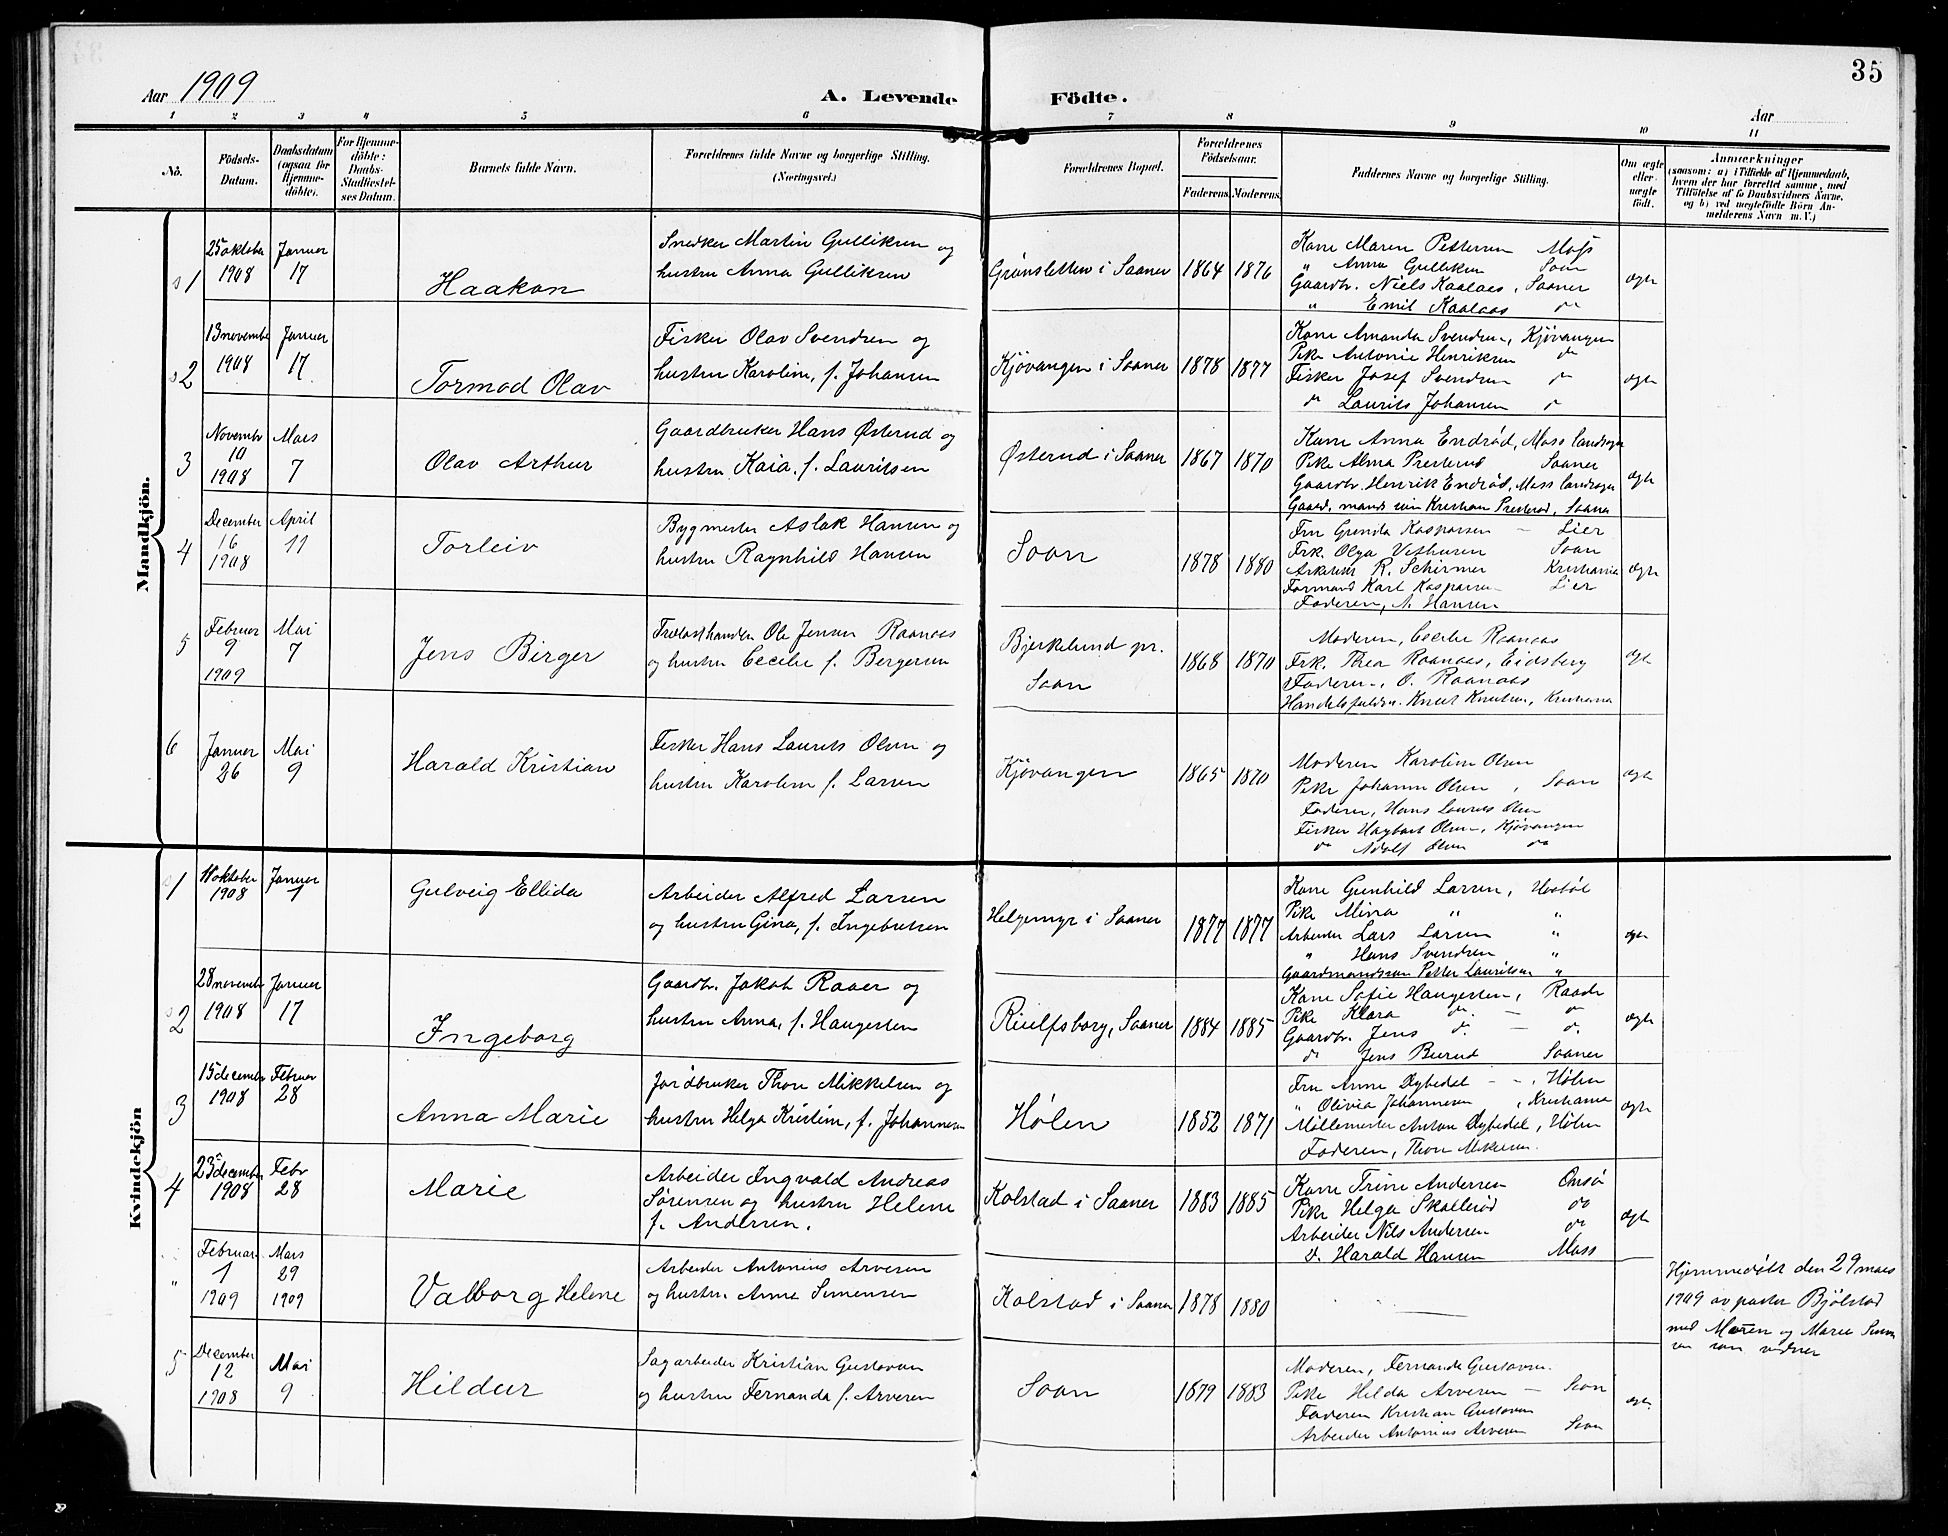 35
Aar 1909
A. Levende Födte.
Aar
1 2 3 4 5 6 7 8 9 10 11
No.
Födsels-Datum.
Daabsdatum (ogsaa for Hjemme-döbte).
For Hjemme-döbte: Daabs-Stadfæstelses Datum.
Barnets fulde Navn.
Forældrenes fulde Navne og borgerlige Stilling. (Næringsvei.)
Forældrenes Bopæl.
Forældrenes Födselsaar.
Faderens. Moderens.
Faddernes Navne og borgerlige Stilling.
Om ægte eller uægte født.
Anmærkninger
(saasom: a) i Tilfælde af Hjemmedaab, hvem der har forrettet samme, med Tilföielse af to Daabsvidners Navne, og b) ved uægtefödte Börn Anmelderens Navn m. V.)
Mandkjön.
1 25 oktober 1908 Januar 17
Haakon
Snedker Martin Gulliksen og
hustru Anna Gulliksen
Grønsletten i Saaner 1864 1876
Kone Maren Pettersen Moss
" Anna Gulliksen Soon
Gaardbr. Niels Kaalaas, Saaner
" Emil Kaalaas do
ægte
2 13 november 1908 Januar 17
Tormod Olav
Fisker Olav Svendsen og
hustru Karoline, f. Johansen
Kjøvangen i Saaner 1878 1877
Kone Amanda Svendsen, Kjøvangen
Pike Antonie Henriksen do
Fisker Josef Svendsen do
do Laurits Johansen do
ægte
3 November 10 1908 Mars 7
Olav Arthur
Gaardbruker Hans Østerud og
hustru Kaia, f. Lauritsen
Østerud i Saaner 1867 1870
Kone Anna Endrød, Moss landsogn
Pike Alma Presterud Saaner
Gaardbr. Henrik Endrød, Moss landsogn
Gaardmands søn Kristian Presterud, Saaner
ægte
4 December 16 1908 April 11
Torleiv
Bygmester Aslak Hansen og
hustru Ragnhild Hansen
Soon 1878 1880
Fru Gunda Kaspersen — Lier
Frk. Olga Vethusen Soon
Arkitekt R. Schirmer Kristiania
Formand Karl Kaspersen Lier
Faderen, A. Hansen
ægte
5 Februar 9 1909 Mai 7
Jens Birger
Trælasthandler Ole Jensen Raanaas
og hustru Cecilie f. Bergersen
Bjerkelund pr.
Soon 1868 1870
Moderen, Cecilie Raanaas
Frk. Thea Raanaas, Eidsberg
Faderen, O. Raanaas
Handelsfuldm. Knut Knutsen, Kristiania
ægte
6 Januar 26 Mai 9
Harald Kristian
Fisker Hans Laurits Olsen og
hustru Karoline f. Larsen
Kjøvangen 1865 1870
Moderen Karoline Olsen
Pike Johanne Olsen, Soon
Faderen, Hans Laurits Olsen
Fisker Hagbart Olsen, Kjøvangen
do Adolf Olsen do
ægte
Kvindekjön
1 oktober 1908 Januar 1
Gulveig Ellida
Arbeider Alfred Larsen
og hustru Gina, f. Ingebretsen
Helgemyr i Saaner 1877 1877
Kone Gunhild Larsen, Hobøl
Pike Mina " "
Arbeider Lars Larsen "
" Hans Svendsen "
Gaardmandssøn Petter Lauritsen "
ægte
2 28 november 1908 Januar 17
Ingeborg
Gaardbr. Jakob Raaer og
hustru Anna, f. Haugesten
Riulfsborg, Saaner 1884 1885
Kone Sofie Haugesten, Raade
Pike Klara do. — do
Gaardbr. Jens do. — do.
do Jens Burud Saaner
ægte
3 15 december 1908 Februar 28
Anna Marie
Jordbruker Thore Mikkelsen og
hustru Helga Kristine, f. Johannesen
Hølen 1852 1871
Fru Anne Dybedal — , Hølen
" Olivia Johannesen , Kristiania
Møllemester Anton Dybedal, Hølen
Faderen, Thore Mikkelsen.
ægte
4 23 december 1908 Febr 28
Marie
Arbeider Ingvald Andreas
Sørensen og hustru Helene
f. Andersen.
Kolstad i Saaner 1883 1885
Kone Trine Andersen Onsø
Pike Helga Skallerød do
Arbeider Nils Andersen do
d. Harald Hansen Moss
ægte
" Februar 1 1909 Mars 29 1909
Valborg Helene
Arbeider Antonius Arvesen
og hustru Anna Simensen
Kolstad i Saaner 1878 1880
Hjemmedøbt den 29 mars
1909 av pastor Bjølstad
med Maren og Marie
som vidner
5 December 12 1908 Mai 9
Hildur
Sagarbeider Kristian Gustavsen
og hustru Fernanda f. Arvesen
Soon 1879 1883
Moderen, Fernanda Gustavsen.
Pike Hilda Arvesen — Soon
Faderen Kristian Gustavsen
Arbeider Antonius Arvesen Soon
ægte.